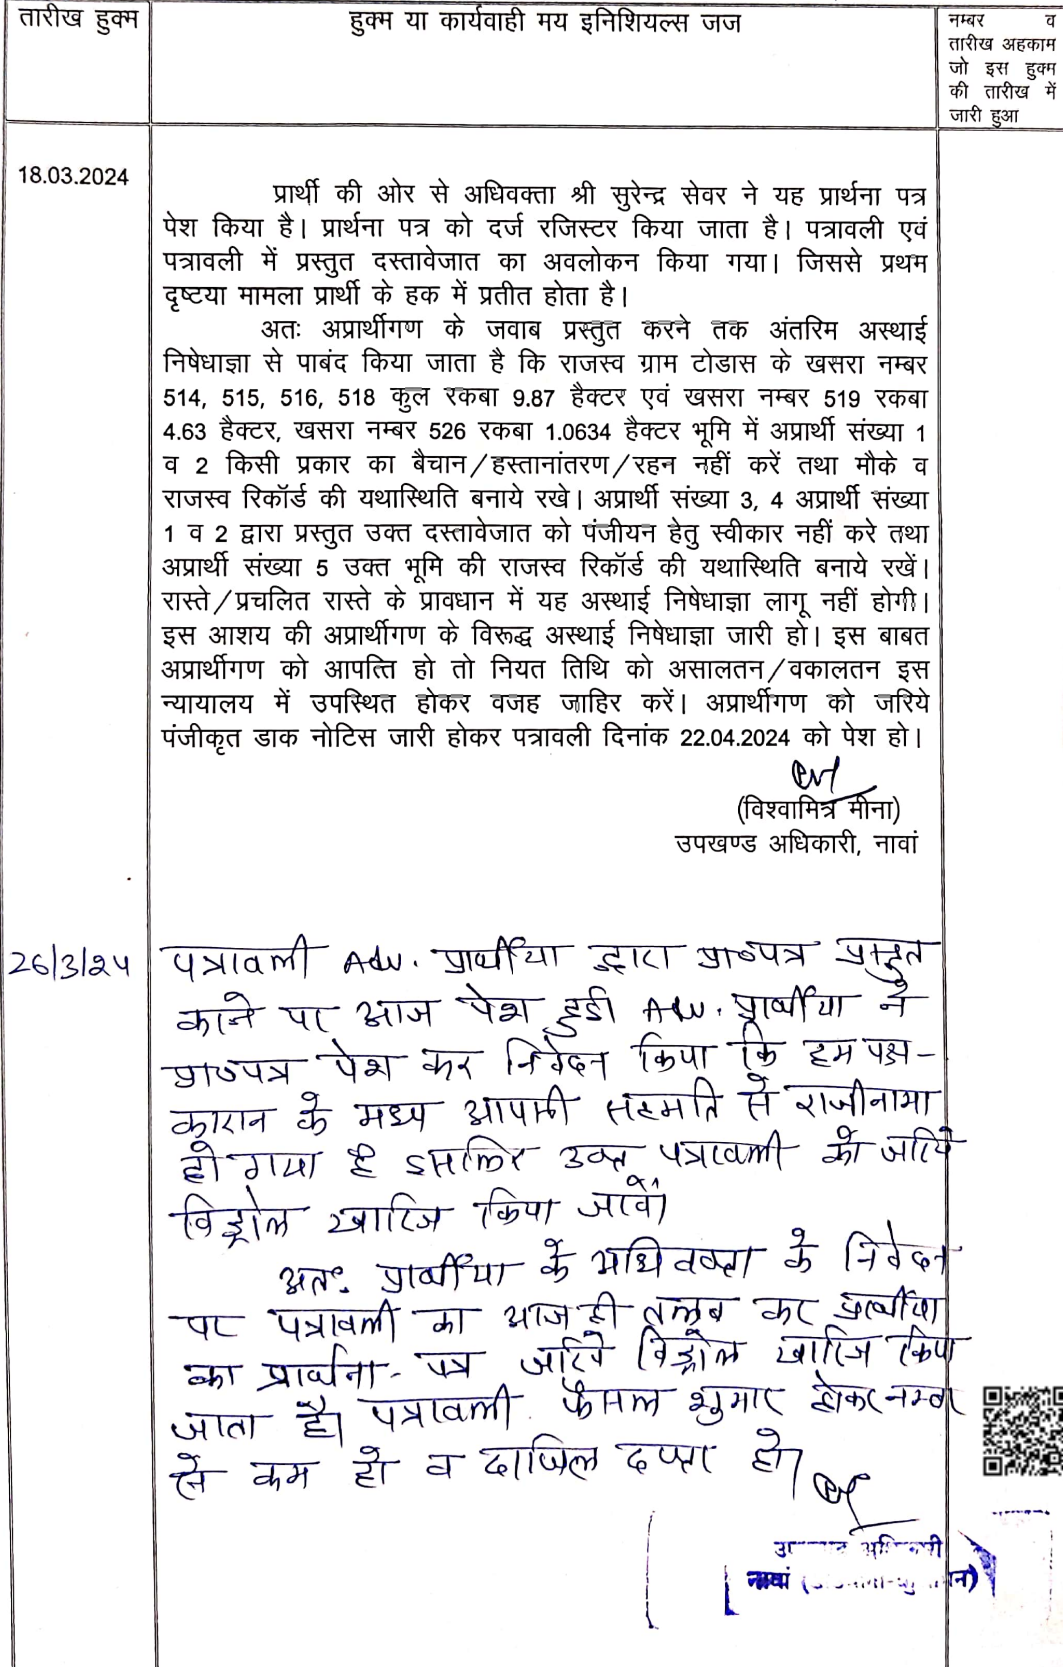 तारीख हुक्म
हुक्म या कार्यवाही मय इनिशियल्स जज
नम्बर व
तारीख अहकाम
जो इस हुक्म
की तारीख में
जारी हुआ
18.03.2024
प्रार्थी की ओर से अधिवक्ता श्री सुरेन्द्र सेवर ने यह प्रार्थना पत्र
पेश किया है। प्रार्थना पत्र को दर्ज रजिस्टर किया जाता है। पत्रावली एवं
पत्रावली में प्रस्तुत दस्तावेजात का अवलोकन किया गया। जिससे प्रथम
दृष्टया मामला प्रार्थी के हक में प्रतीत होता है।
अतः अप्रार्थीगण के जवाब प्रस्तुत करने तक अंतरिम अस्थाई
निषेधाज्ञा से पाबंद किया जाता है कि राजस्व ग्राम टोडास के खसरा नम्बर
514, 515, 516, 518 कुल रकबा 9.87 हैक्टर एवं खसरा नम्बर 519 रकबा
4.63 हैक्टर, खसरा नम्बर 526 रकबा 1.0634 हैक्टर भूमि में अप्रार्थी संख्या 1
व 2 किसी प्रकार का बैचान/हस्तानांतरण/रहन नहीं करें तथा मौके व
राजस्व रिकॉर्ड की यथास्थिति बनाये रखे। अप्रार्थी संख्या 3, 4 अप्रार्थी संख्या
1 व 2 द्वारा प्रस्तुत उक्त दस्तावेजात को पंजीयन हेतु स्वीकार नहीं करे तथा
अप्रार्थी संख्या 5 उक्त भूमि की राजस्व रिकॉर्ड की यथास्थिति बनाये रखें।
रास्ते/प्रचलित रास्ते के प्रावधान में यह अस्थाई निषेधाज्ञा लागू नहीं होगी।
इस आशय की अप्रार्थीगण के विरूद्ध अस्थाई निषेधाज्ञा जारी हो। इस बाबत
अप्रार्थीगण को आपत्ति हो तो नियत तिथि को असालतन/वकालतन इस
न्यायालय में उपस्थित होकर वजह जाहिर करें। अप्रार्थीगण को जरिये
पंजीकृत डाक नोटिस जारी होकर पत्रावली दिनांक 22.04.2024 को पेश हो।
(विश्वामित्र मीना)
उपखण्ड अधिकारी, नावां
26/3/24
पत्रावली Adv. प्रार्थीया द्वारा प्रा०पत्र प्रस्तुत
करने पर आज पेश हुई Adv. प्रार्थीया ने
प्रा०पत्र पेश कर निवेदन किया कि हम पक्ष-
कारान के मध्य आपसी सहमति से राजीनामा
हो गया है इसलिए उक्त पत्रावली को जरिये
विड्रोल खारिज किया जावें।
अतः प्रार्थीया के अधिवक्ता के निवेदन
पर पत्रावली को आज ही तलब कर प्रार्थीया
का प्रार्थना-पत्र जरिये विड्रोल खारिज किया
जाता है। पत्रावली फैसल शुमार होकर नम्बर
से कम हो व दाखिल दफ्तर हो।
अधिकारी
नावां